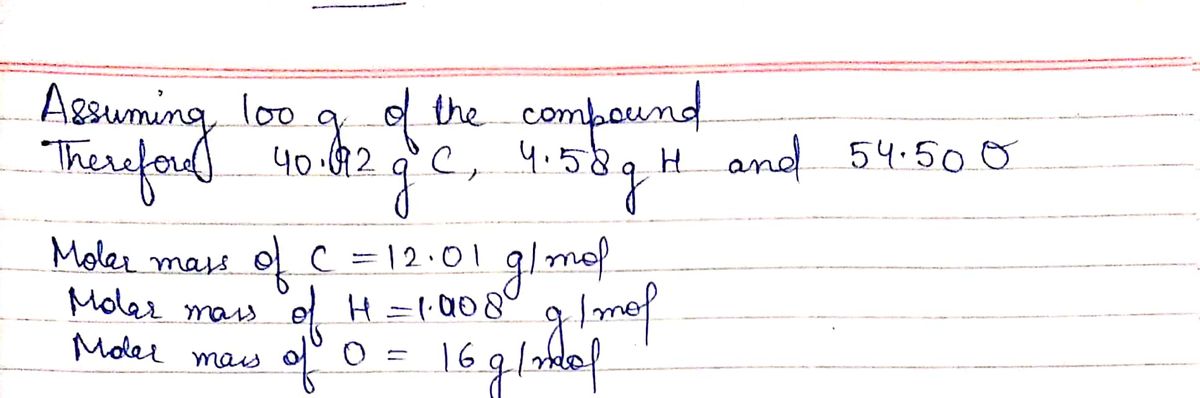 Assuming 100 g of the compound
Therefore 40.92 g C, 4.58 g H and 54.50 O
Molar mass of C = 12.01 g/mol
Molar mass of H = 1.008 g/mol
Molar mass of O = 16 g/mol